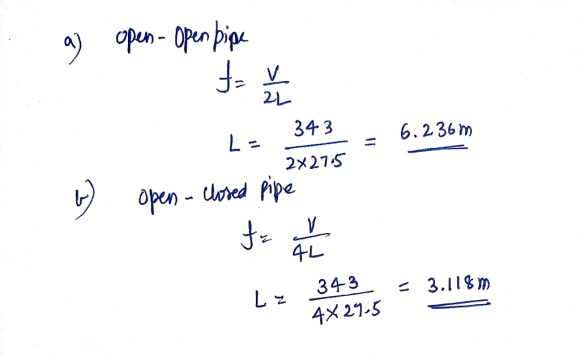 a) open - Open pipe
f = V / 2L
L = 343 / 2×27.5 = 6.236m
b) open - closed pipe
f = V / 4L
L = 343 / 4×27.5 = 3.118m